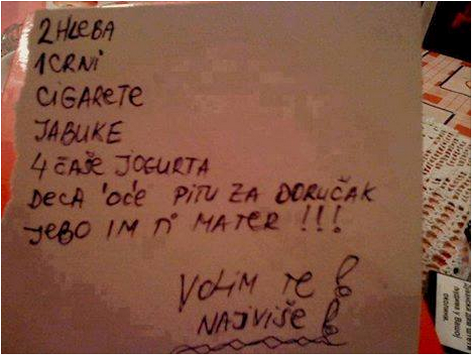 2 HLEBA
1 CRNI
CIGARETE
JABUKE
4 ČAŠE JOGURTA
DECA 'OĆE PITU ZA DORUČAK
JEBO IM TI MATER !!!
VOLIM TE
NAJVIŠE